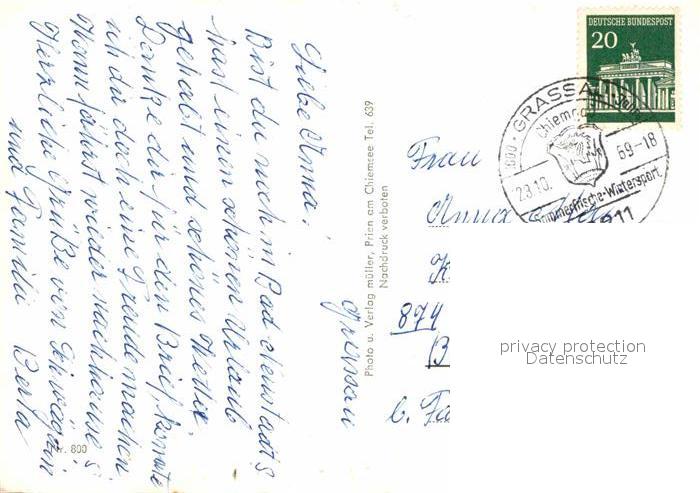 Grassau
Liebe Anna!
Bist du noch in Bad Neustadt S
hast einen schönen Urlaub
gehabt und schönes Wetter.
Danke dir für den Brief, konnte
ich dir doch eine Freude machen
Wann fährst wieder nachhause?
Herzliche Grüße von Schwägerin
und Familie Berta
Nr. 800
Photo u. Verlag müller, Prien am Chiemsee Tel. 639
Nachdruck verboten
DEUTSCHE BUNDESPOST
20
GRASSAU
Chiemgau
23.10.
69-18
Sommerfrische-Wintersport
Frau
Anna
874
b.
privacy protection
Datenschutz